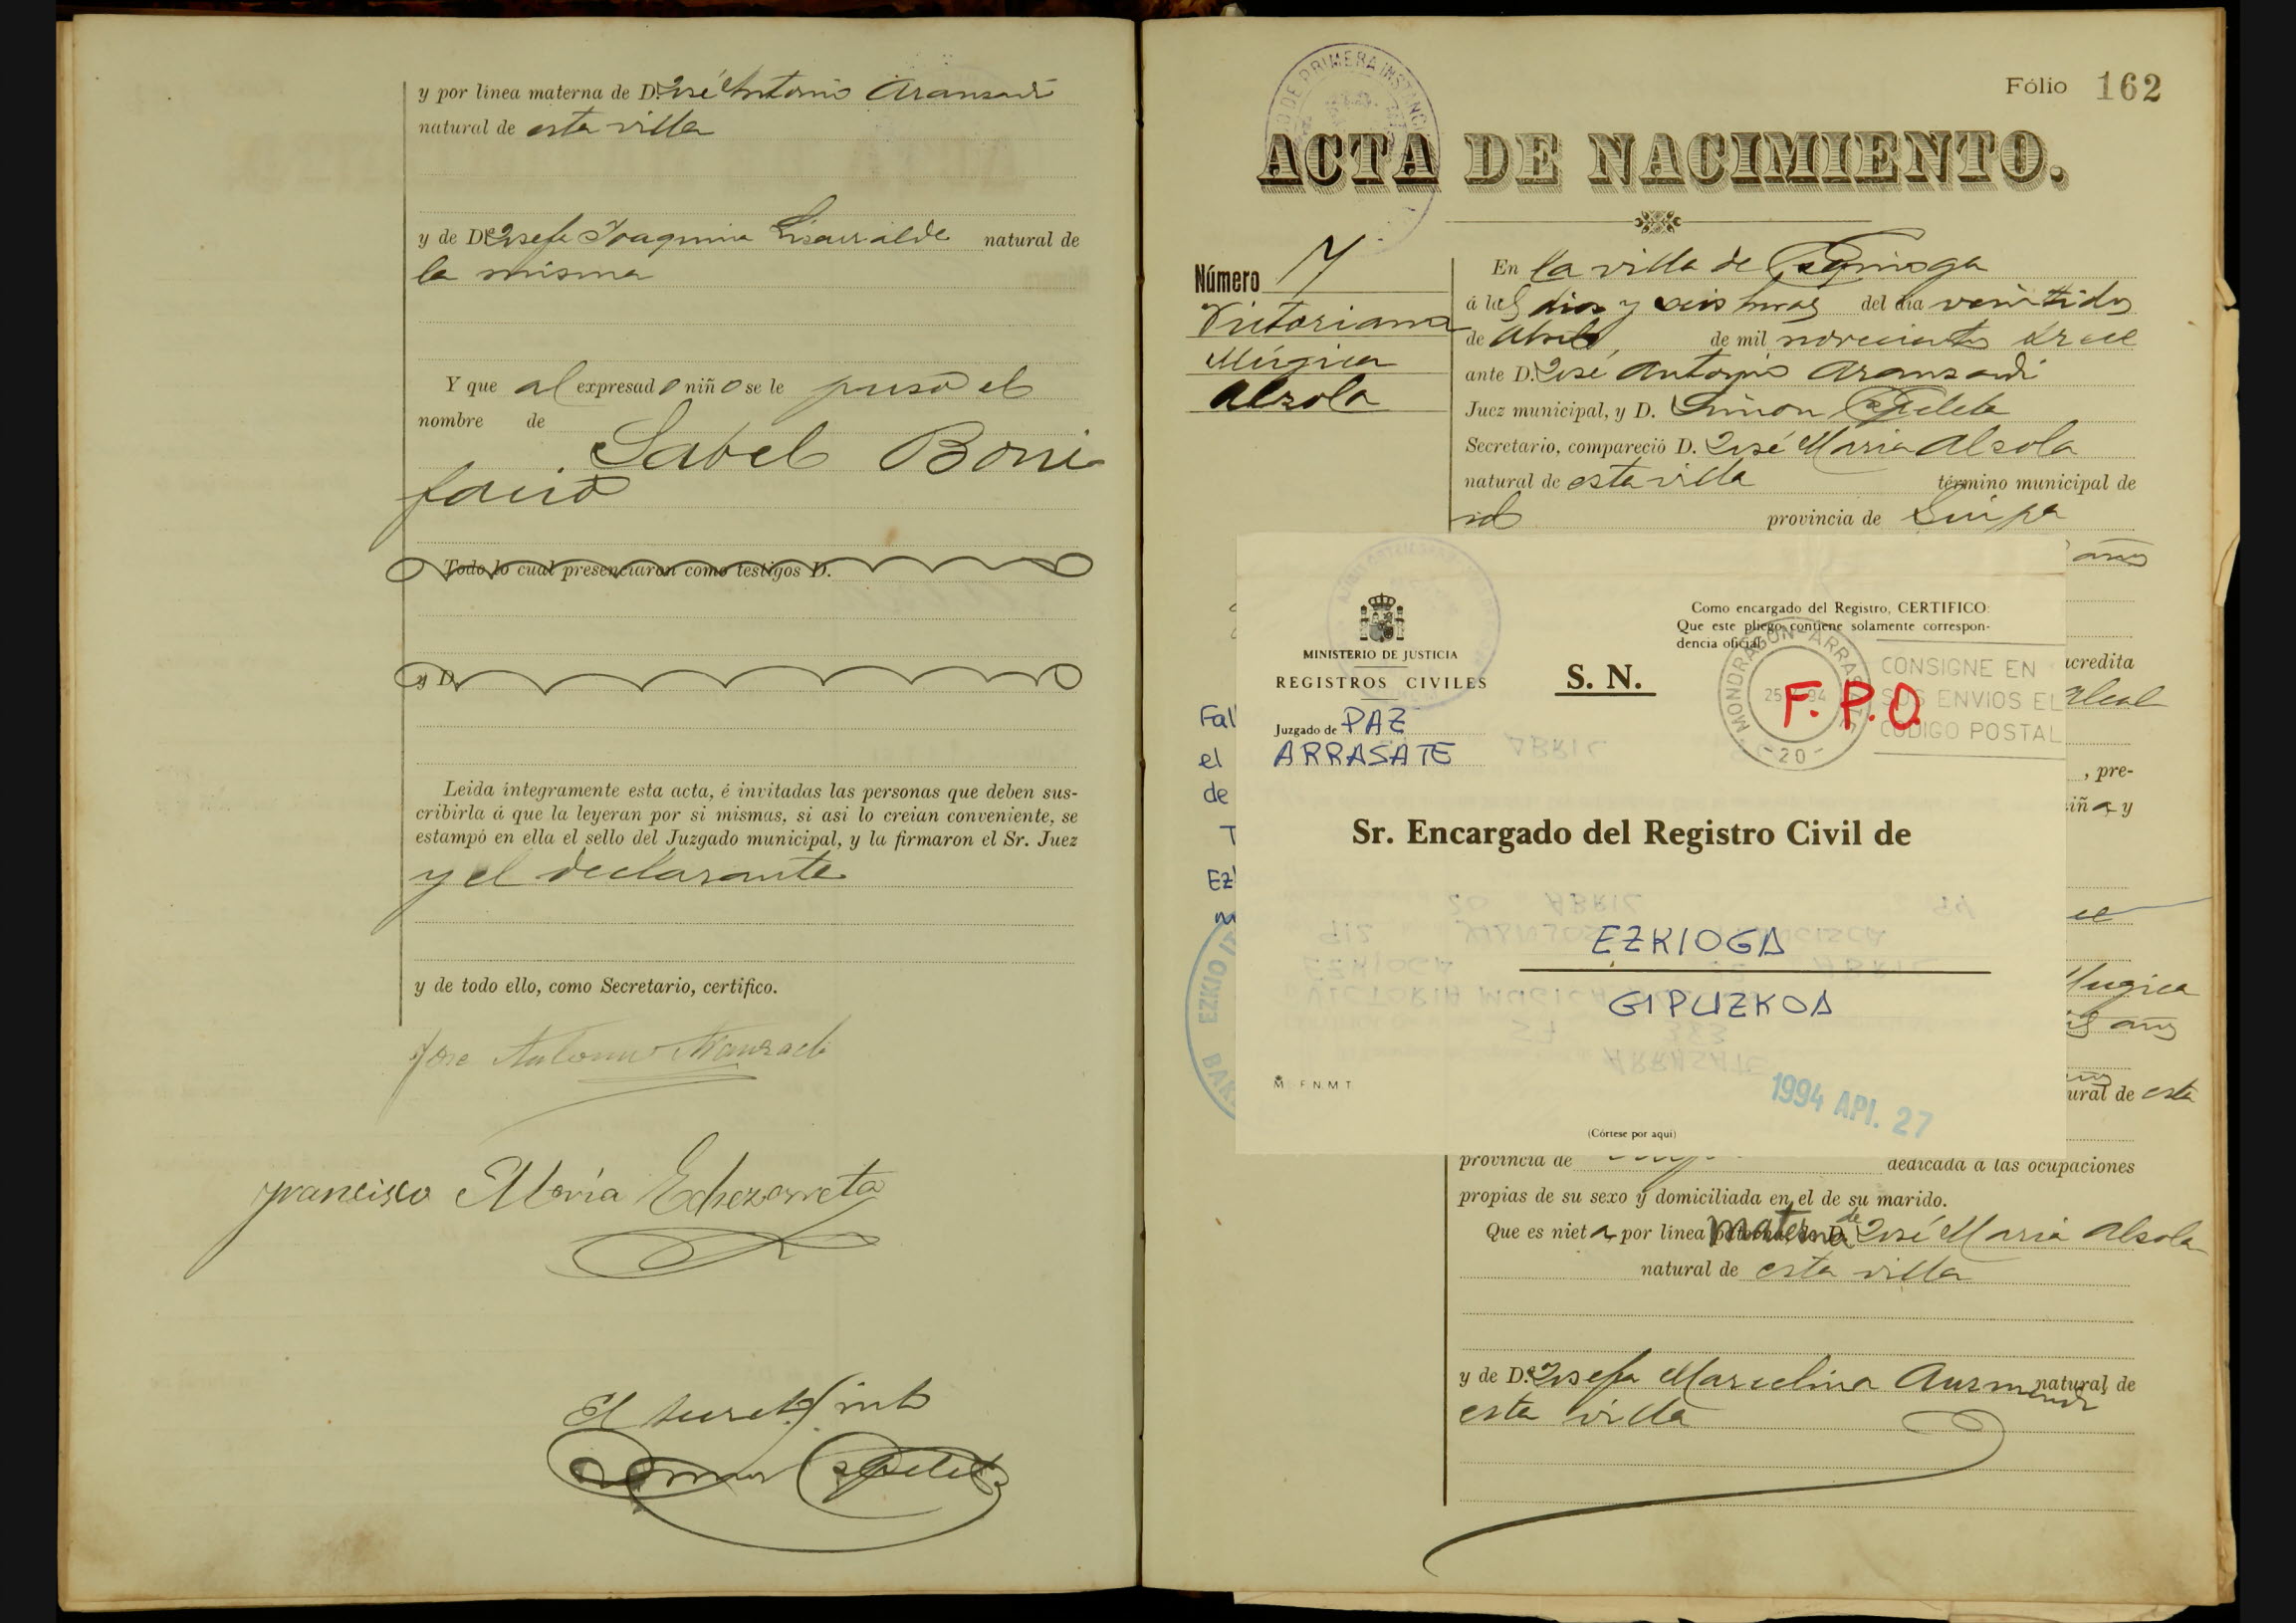 y por línea materna de D. José Antonio Aransadi
natural de esta villa
y de Dª Josefa Joaquina Lisarralde natural de
la misma
Y que al expresado niño se le puso el
nombre de
Sabel Boni
facio
Todo lo cual presenciaron como testigos D.
y D.
Leida íntegramente esta acta, é invitadas las personas que deben sus-
cribirla á que la leyeran por si mismas, si asi lo creian conveniente, se
estampó en ella el sello del Juzgado municipal, y la firmaron el Sr. Juez
y el declarante
y de todo ello, como Secretario, certifico.
José Antonio Aransadi
Francisco María Echezarreta
El
Fólio 162
ACTA DE NACIMIENTO.
Número 7
Victoriana
Múgica
Alzola
En la villa de Ezquioga
á las dies y seis horas del dia veintidos
de Abril, de mil novecientos trece
ante D. José Antonio Aransadi
Juez municipal, y D. Simon
Secretario, compareció D. José María Alzola
natural de esta villa término municipal de
id provincia de Guipa
años
MINISTERIO DE JUSTICIA
REGISTROS CIVILES
Juzgado de PAZ
ARRASATE
S. N.
Como encargado del Registro, CERTIFICO:
Que este pliego contiene solamente correspon-
dencia oficial
MONDRAGON-ARRASATE
-20-
F.P.O.
CONSIGNE EN
SUS ENVIOS EL
CODIGO POSTAL
acredita
Fal
el
de
, pre-
iña y
Sr. Encargado del Registro Civil de
EZKIOGA
GIPUZKOA
EZKIO
Mugica
años
M F N M T
1994 API. 27
(Córtese por aquí)
ural de esta
provincia de dedicada á las ocupaciones
propias de su sexo y domiciliada en el de su marido.
Que es nieta por línea materna de D. José María Alzola
natural de esta villa
y de Dª Josefa Marcelina Ausmendi natural de
esta villa